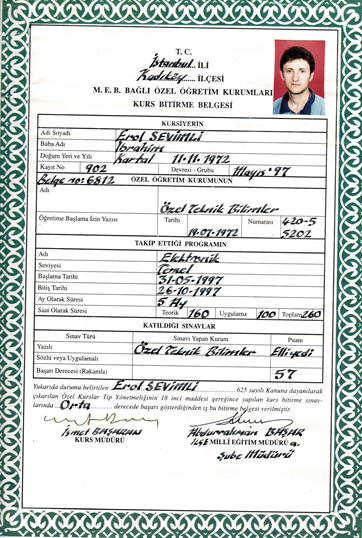 T. C.
İstanbul İLİ
Kadıköy..... İLÇESİ
M. E. B. BAĞLI ÖZEL ÖĞRETİM KURUMLARI
KURS BİTİRME BELGESİ
KURSİYERİN
Adı Soyadı Erol SEVİMLİ
Baba Adı İbrahim
Doğum Yeri ve Yılı Kartal 11.11.1972
Kayıt No 902 Devresi - Grubu Mayıs '97
Belge no: 6812 ÖZEL ÖĞRETİM KURUMUNUN
Adı Özel Teknik Bilimler
Öğretime Başlama İzin Yazısı Tarihi 19.07.1972 Numarası 420-5
5202
TAKİP ETTİĞİ PROGRAMIN
Adı Elektronik
Seviyesi Temel
Başlama Tarihi 31-05-1997
Bitiş Tarihi 26-10-1997
Ay Olarak Süresi 5 Ay
Saat Olarak Süresi Teorik 160 Uygulama 100 Toplam 260
KATILDIĞI SINAVLAR
Sınav Türü Sınavı Yapan Kurum Puanı
Yazılı Özel Teknik Bilimler Elliyedi
Sözlü veya Uygulamalı
Başarı Derecesi (Rakamla) 57
Yukarıda durumu belirtilen Erol SEVİMLİ 625 sayılı Kanuna dayanılarak
çıkarılan Özel Kurslar Tip Yönetmeliğinin 18 inci maddesi gereğince yapılan kurs bitirme sınav-
larında Orta derecede başarı gösterdiğinden iş bu bitirme belgesi verilmiştir.
İsmet BAŞARAN Abdurrahman BAŞAR
KURS MÜDÜRÜ İLÇE MİLLİ EĞİTİM MÜDÜRÜ a.
Şube Müdürü